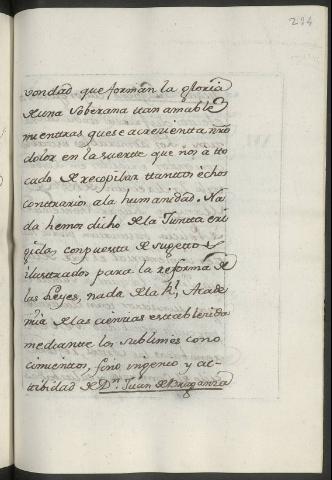 224
vondad, que forman la gloria
de una Soberana tan amable
mientras que se acrevienta nrõ
dolor en la suerte que nos a to
cado de recopilar tanttos echos
conttrarios a la humanidad. Na
da hemos dicho de la Juntta eri
gida, conpuesta de sugettos
ilustrados para la reforma de
las Leyes, nada de la Rl. Acade
mia de las ciencias establecida
mediante los sublimes cono
cimientos, fino ingenio y ac-
tibidad de Dn. Juan de Braganza